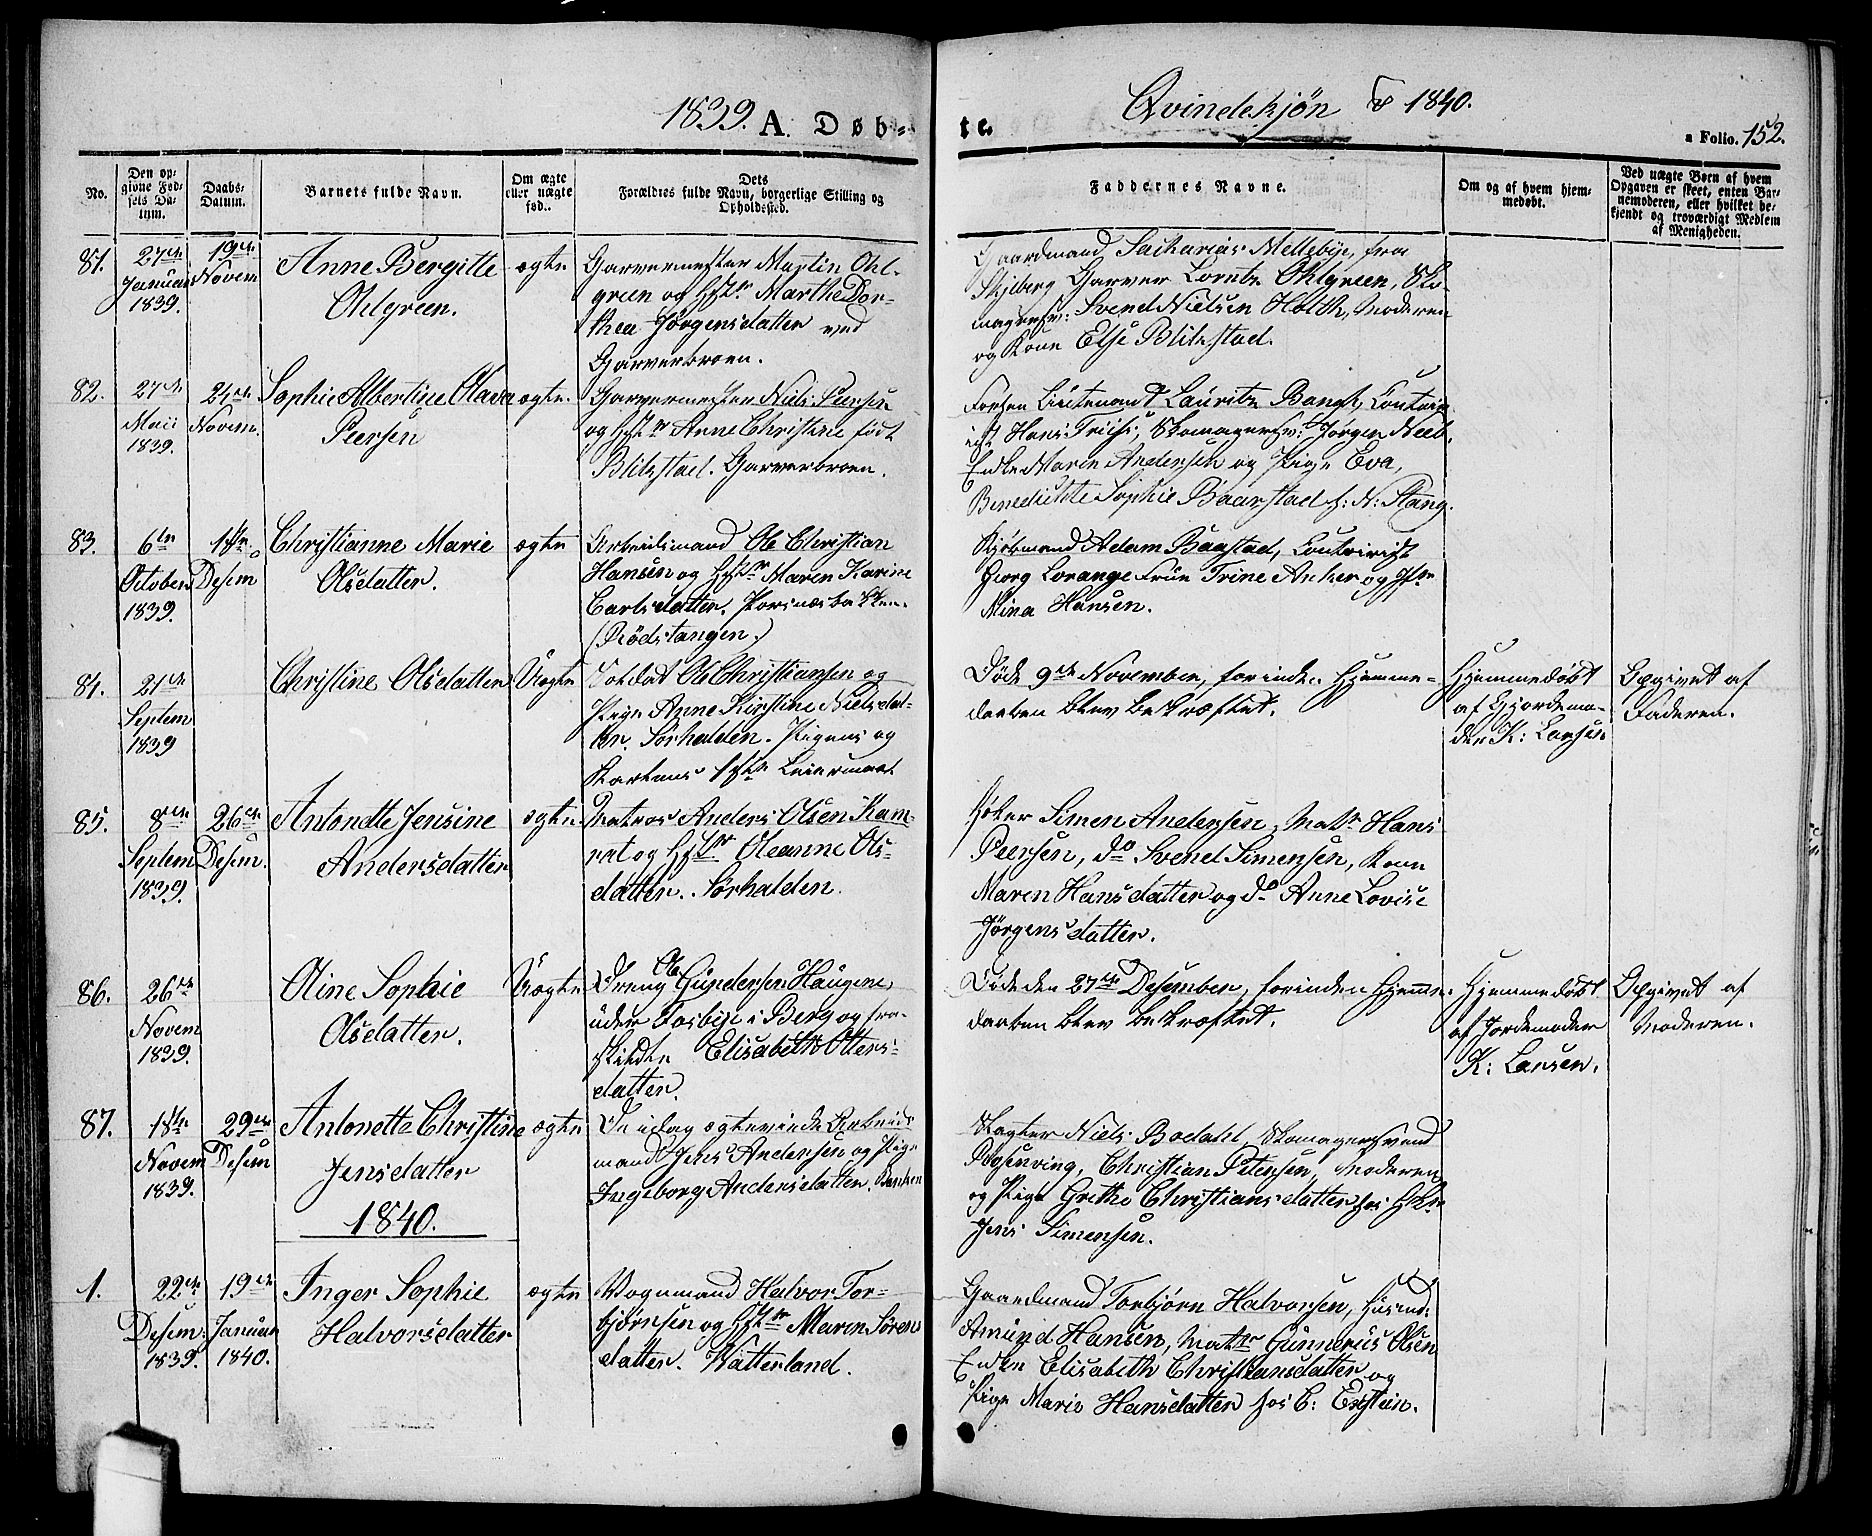 1839. A. Døb-
te.
Qvindekjøn & 1840.
a Folio. 152.
No.
Den op-
givne Fød-
sels Da-
tum.
Daabs-
Datum.
Barnets fulde Navn.
Om ægte
eller uægte
fød.
Dets
Forældres fulde Navn, borgerlige Stilling og
Opholdssted.
Faddernes Navne.
Om og af hvem hjem-
medøbt.
Ved uægte Børn af hvem
Opgaven er skeet, enten Bar-
nemoderen, eller hvilket be-
kjendt og troværdigt Medlem
af Menigheden.
81.
27de
Januar
1839.
19de
Novem
Anne Bergitte
Ohlgreen.
ægte
Garvermester Martin Ohl-
green og Hstr Marthe Dor-
thea Jørgensdatter ved
Garverbroen.
Gaardmand Sacharias Melleby, fra
Skjeberg Garver Lorntz Ohlgreen, Sko-
magersv: Svend Nielsen Holth, Moderen
og Kone Else Blikstad.
82.
27de
Maii
1839.
24de
Novem.
Sophie Albertine Olava
Peersen
ægte.
Garvermester Niels Peersen
og Hstr Anne Christine født
Blikstad. Garverbroen.
Lieutenant Lauritz Bangh, Contoir
ist Hans Friis, Skomagersv: Jørgen
Enke Maren Andersen og Pige Eva,
Benedichte Sophie Baarstad h: N: Stang.
83.
6te
October
1839.
1ste
Desem
Christianne Marie
Olsdatter.
ægte
Arbeidsmand Ole Christian
Hansen og Hstr Maren Karine
Carlsdatter. Porsnæsbakken.
(Rødstangen.)
Kjøbmand Adam Baastad, Contoirist
Georg Lorange Frue Trine Anker og Jfr
Mina Hansen.
84.
21de
Septem
1839
Christine Olsdatter
Uægte
Soldat Ole Christiansen og
Pige Anne Kirstine Nielsdat-
ter. Sørhalden. Pigens og
Karlens 1ste Leiermaal
Døde 9de November, forinden Hjemme-
daaben blev bekræftet.
Hjemmedøbt
af Gjordemo-
der K: Larsen
Opgivet af
Faderen.
85.
8de
Septem
1839.
26de
Desem.
Antonette Jensine
Andersdatter
ægte.
Matros Anders Olsen Kam-
rat og Hstr Oleanne Ols-
datter. Sørhalden.
Høker Simen Andersen, Matr Hans
Peersen, do Svend Simensen, Kone
Maren Hansdatter og do Anne Lovise
Jørgensdatter.
86.
26de
Novem
1839.
Oline Sophie
Olsdatter.
Uægte
Dreng Ole Gundersen Haugene,
under Fosbye i Berg og fra-
skildte Elisabeth Ottens-
datter.
Døde den 27de Desember, forinden Hjemme-
daaben blev bekræftet.
Hjemmedøbt
af Jordemoder
K: Larsen.
Opgivet af
Moderen.
87.
18de
Novem
1839.
29de
Desem
Antonette Christine
Jensdatter
ægte
De idag ægteviede Arbeids
mand Jens Andersen og Pige
Ingeborg Andersdatter. Banken
Slagter Niels Bodahl, Skomagersvend
Christian Petersen, Moderen
og Pige Grethe Christiansdatter hos
Jens Simensen.
1840.
1.
22de
Desem:
1839.
19de
Januar
1840.
Inger Sophie
Halvorsdatter
ægte
Vognmand Halvor Tor-
bjørnsen og Hstr Maren Søren
datter. Watterland.
Gaardmand Torbjørn Halvorsen, Husmd.
Amund Hansen, Matr Gunnerius Olsen
Enken Elisabeth Christiansdatter og
Pige Marie Hansdatter hos C: Enstein.